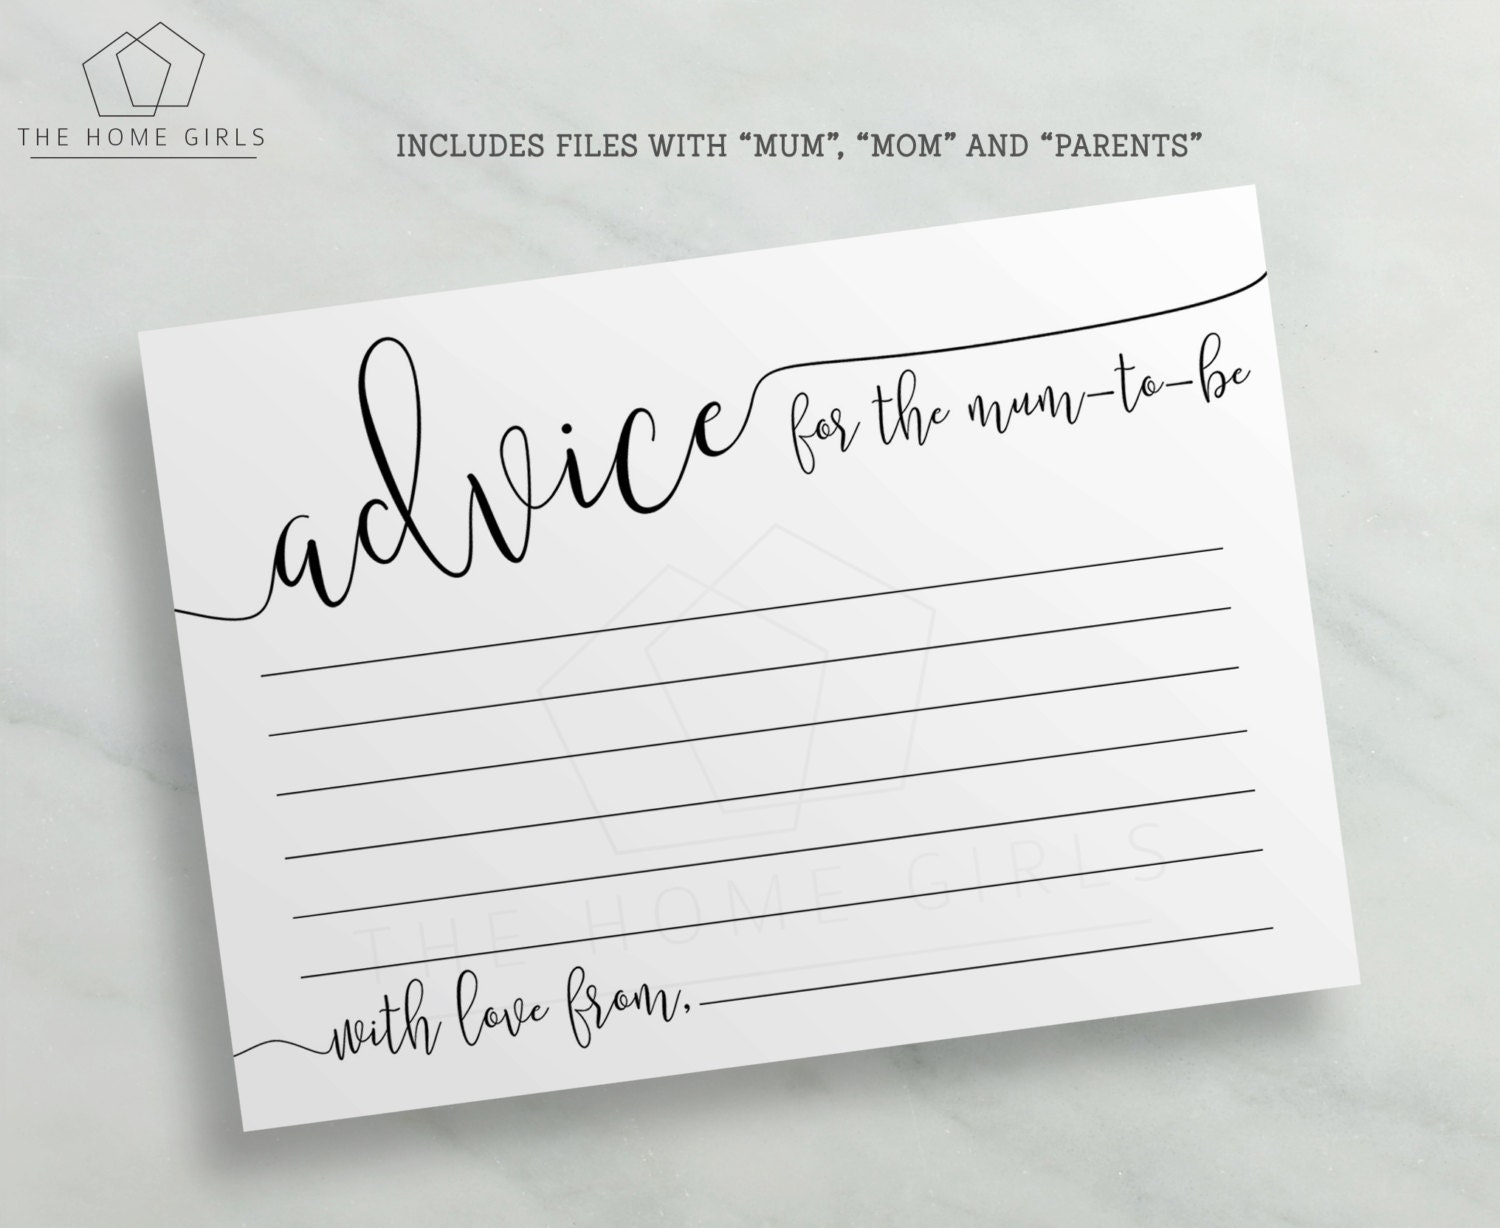 THE HOME GIRLS
INCLUDES FILES WITH “MUM”, “MOM” AND “PARENTS”
advice for the mum-to-be
THE HOME GIRLS
with love from,